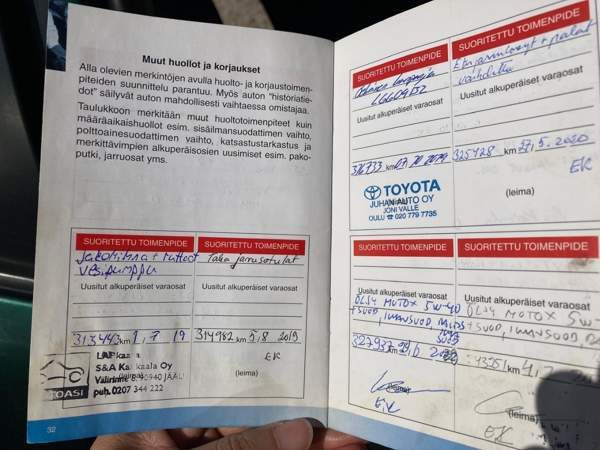 Muut huollot ja korjaukset
Alla olevien merkintöjen avulla huolto- ja korjaustoimen-
piteiden suunnittelu parantuu. Myös auton "historiatie-
dot" säilyvät auton mahdollisesti vaihtaessa omistajaa.
Taulukkoon merkitään muut huoltotoimenpiteet kuin
määräaikaishuollot esim. sisäilmansuodattimen vaihto,
polttoainesuodattimen vaihto, katsastustarkastus ja
merkittävimpien alkuperäisosien uusimiset esim. pako-
putki, jarruosat yms.
SUORITETTU TOIMENPIDE
Jakohihna + rullat
vesipumppu
Uusitut alkuperäiset varaosat
313443 km 1, 7 19
LAPkaala
S&A Karkaala Oy
90940 JÄÄLI
puh. 0207 344 222
OASI
SUORITETTU TOIMENPIDE
Taka jarrusatulat
Uusitut alkuperäiset varaosat
314982 km 5,8 2019
EK
(leima)
32
SUORITETTU TOIMENPIDE
Uusitut alkuperäiset varaosat
km 07.10 2019
TOYOTA
JUHANI AUTO OY
JONI VALLE
OULU ☎ 020 779 7735
SUORITETTU TOIMENPIDE
Etujarrulevyt + palat
vaihdettu
Uusitut alkuperäiset varaosat
325428 km 27, 5. 2020
EK
(leima)
SUORITETTU TOIMENPIDE
ÖLJY MOTOX 5W-40
Uusitut alkuperäiset varaosat
327937
(leima)
EK
SUORITETTU TOIMENPIDE
ÖLJY MOTOX 5W-
Uusitut alkuperäiset varaosat
km
(leima)
EK